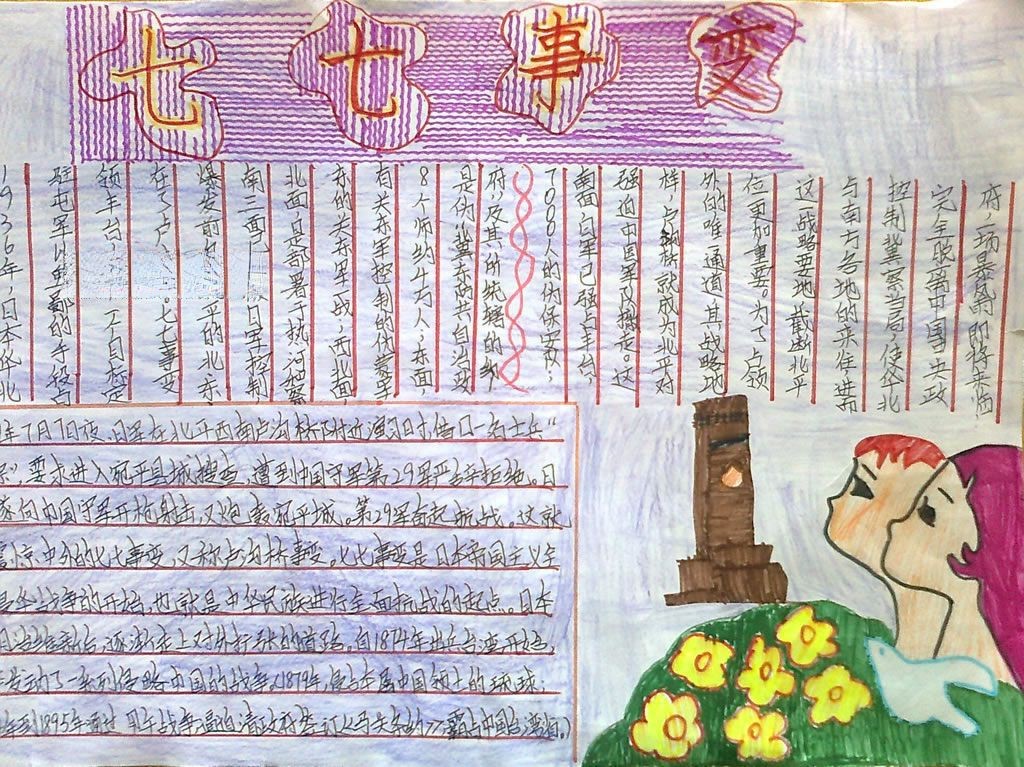 七七事变
1936年,日本华北
驻屯军以的手段占
领丰台,
在了卢。七七事变
爆发前夕平的北东
南三面已日军控制
北面,是部署于热河和察
东的关东军一或,西北面,
有关东军控制的伪蒙军
8个师约4万人;东面
是伪冀东防共自治政
府,及其所统辖的约
7000人的伪保安队;
南面日军已强占丰台,
强迫中国军队撤走。这
样,卢沟桥就成为北平对
外的唯一通道,其战略地
位更加重要。为了占领
这战略要地,截断北平
与南方各地的来往,进而
控制冀察当局,使华北
完全脱离中国中央政
府,一场暴风即将来临
年7月7日夜,日军在北平西南卢沟桥附近演习时,借口一名士兵"
要求进入宛平县城搜查,遭到中国守军第29军严辞拒绝。日
遂向中国守军开枪射击,又炮轰宛平城。第29军奋起抗战。这就
震惊中外的七七事变,又称卢沟桥事变。七七事变是日本帝国主义全
侵华战争的开始,也就是中华民族进行全面抗战的起点。日本
明治维新后,逐渐走上对外行张的道路。自1874年出兵台湾开始,
发动了一系列侵略中国的战争。1879年,侵占本属中国领土的琉球;
年到1895年通过甲午战争逼迫清政府签订《马关条约》霸占中国台湾